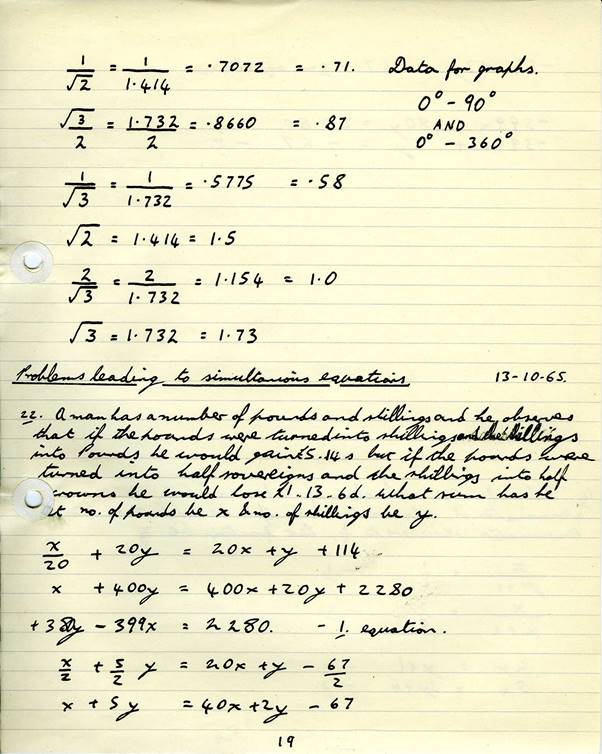 1/√2 = 1/1.414 = .7072 = .71. Data for graphs.
0° - 90°
√3/2 = 1.732/2 = .8660 = .87 AND
0° - 360°
1/√3 = 1/1.732 = .5775 = .58
√2 = 1.414 = 1.5
2/√3 = 2/1.732 = 1.154 = 1.0
√3 = 1.732 = 1.73
Problems leading to simultanious equations 13-10-65.
22. A man has a number of pounds and shillings and he observes
that if the pounds were turned into shillings and the shillings
into Pounds he would gain £5.14s but if the pounds were
turned into half sovereigns and the shillings into half
crowns he would lose £1-13-6d. What sum has he
no. of pounds be x & no. of shillings be y.
x/20 + 20y = 20x + y + 114
x + 400y = 400x + 20y + 2280
+380y - 399x = 2280. - 1. equation.
x/2 + 5/2 y = 20x + y - 67/2
x + 5y = 40x + 2y - 67
19